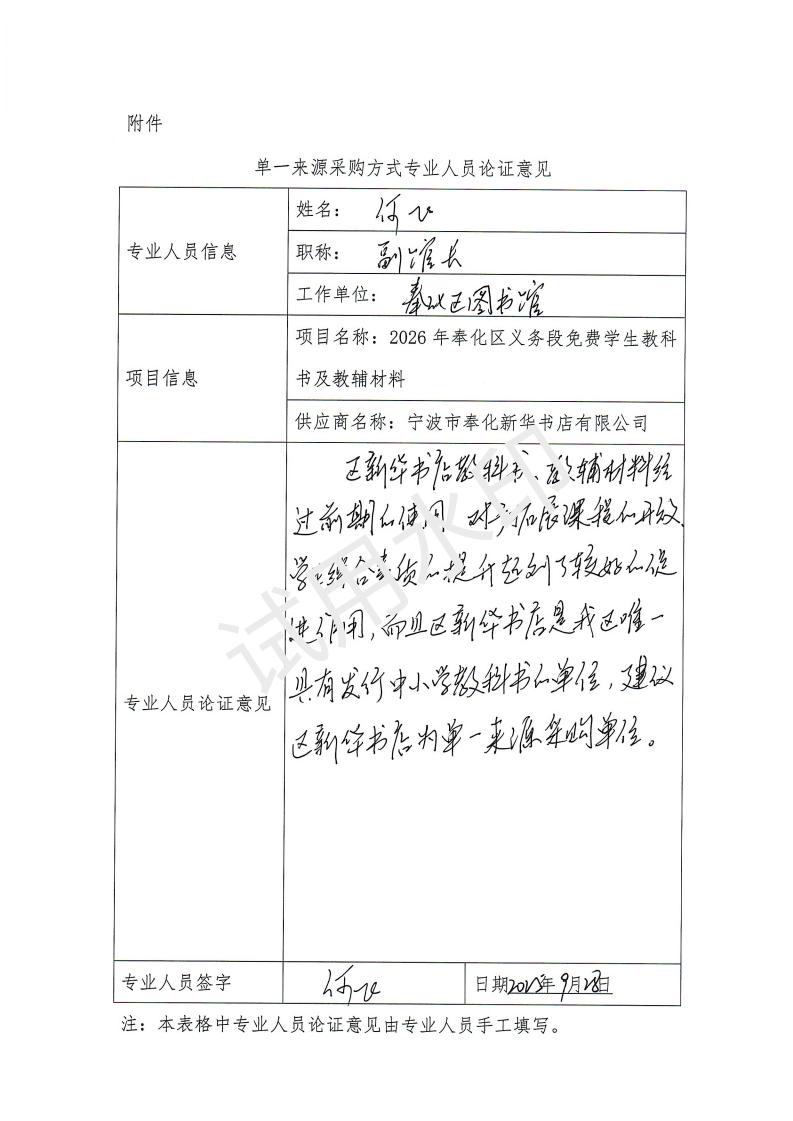 附件
单一来源采购方式专业人员论证意见
专业人员信息
姓名： 何飞
职称： 副馆长
工作单位： 奉化区图书馆
项目信息
项目名称：2026 年奉化区义务段免费学生教科
书及教辅材料
供应商名称：宁波市奉化新华书店有限公司
专业人员论证意见
区新华书店教科书、教辅材料经
过前期的使用，对 拓展课程的开放、
学生综合素质的提升起到了较好的促
进作用，而且区新华书店是我区唯一
具有发行中小学教科书的单位，建议
区新华书店为单一来源采购单位。
专业人员签字
何飞
日期2025年9月28日
注：本表格中专业人员论证意见由专业人员手工填写。
试用水印